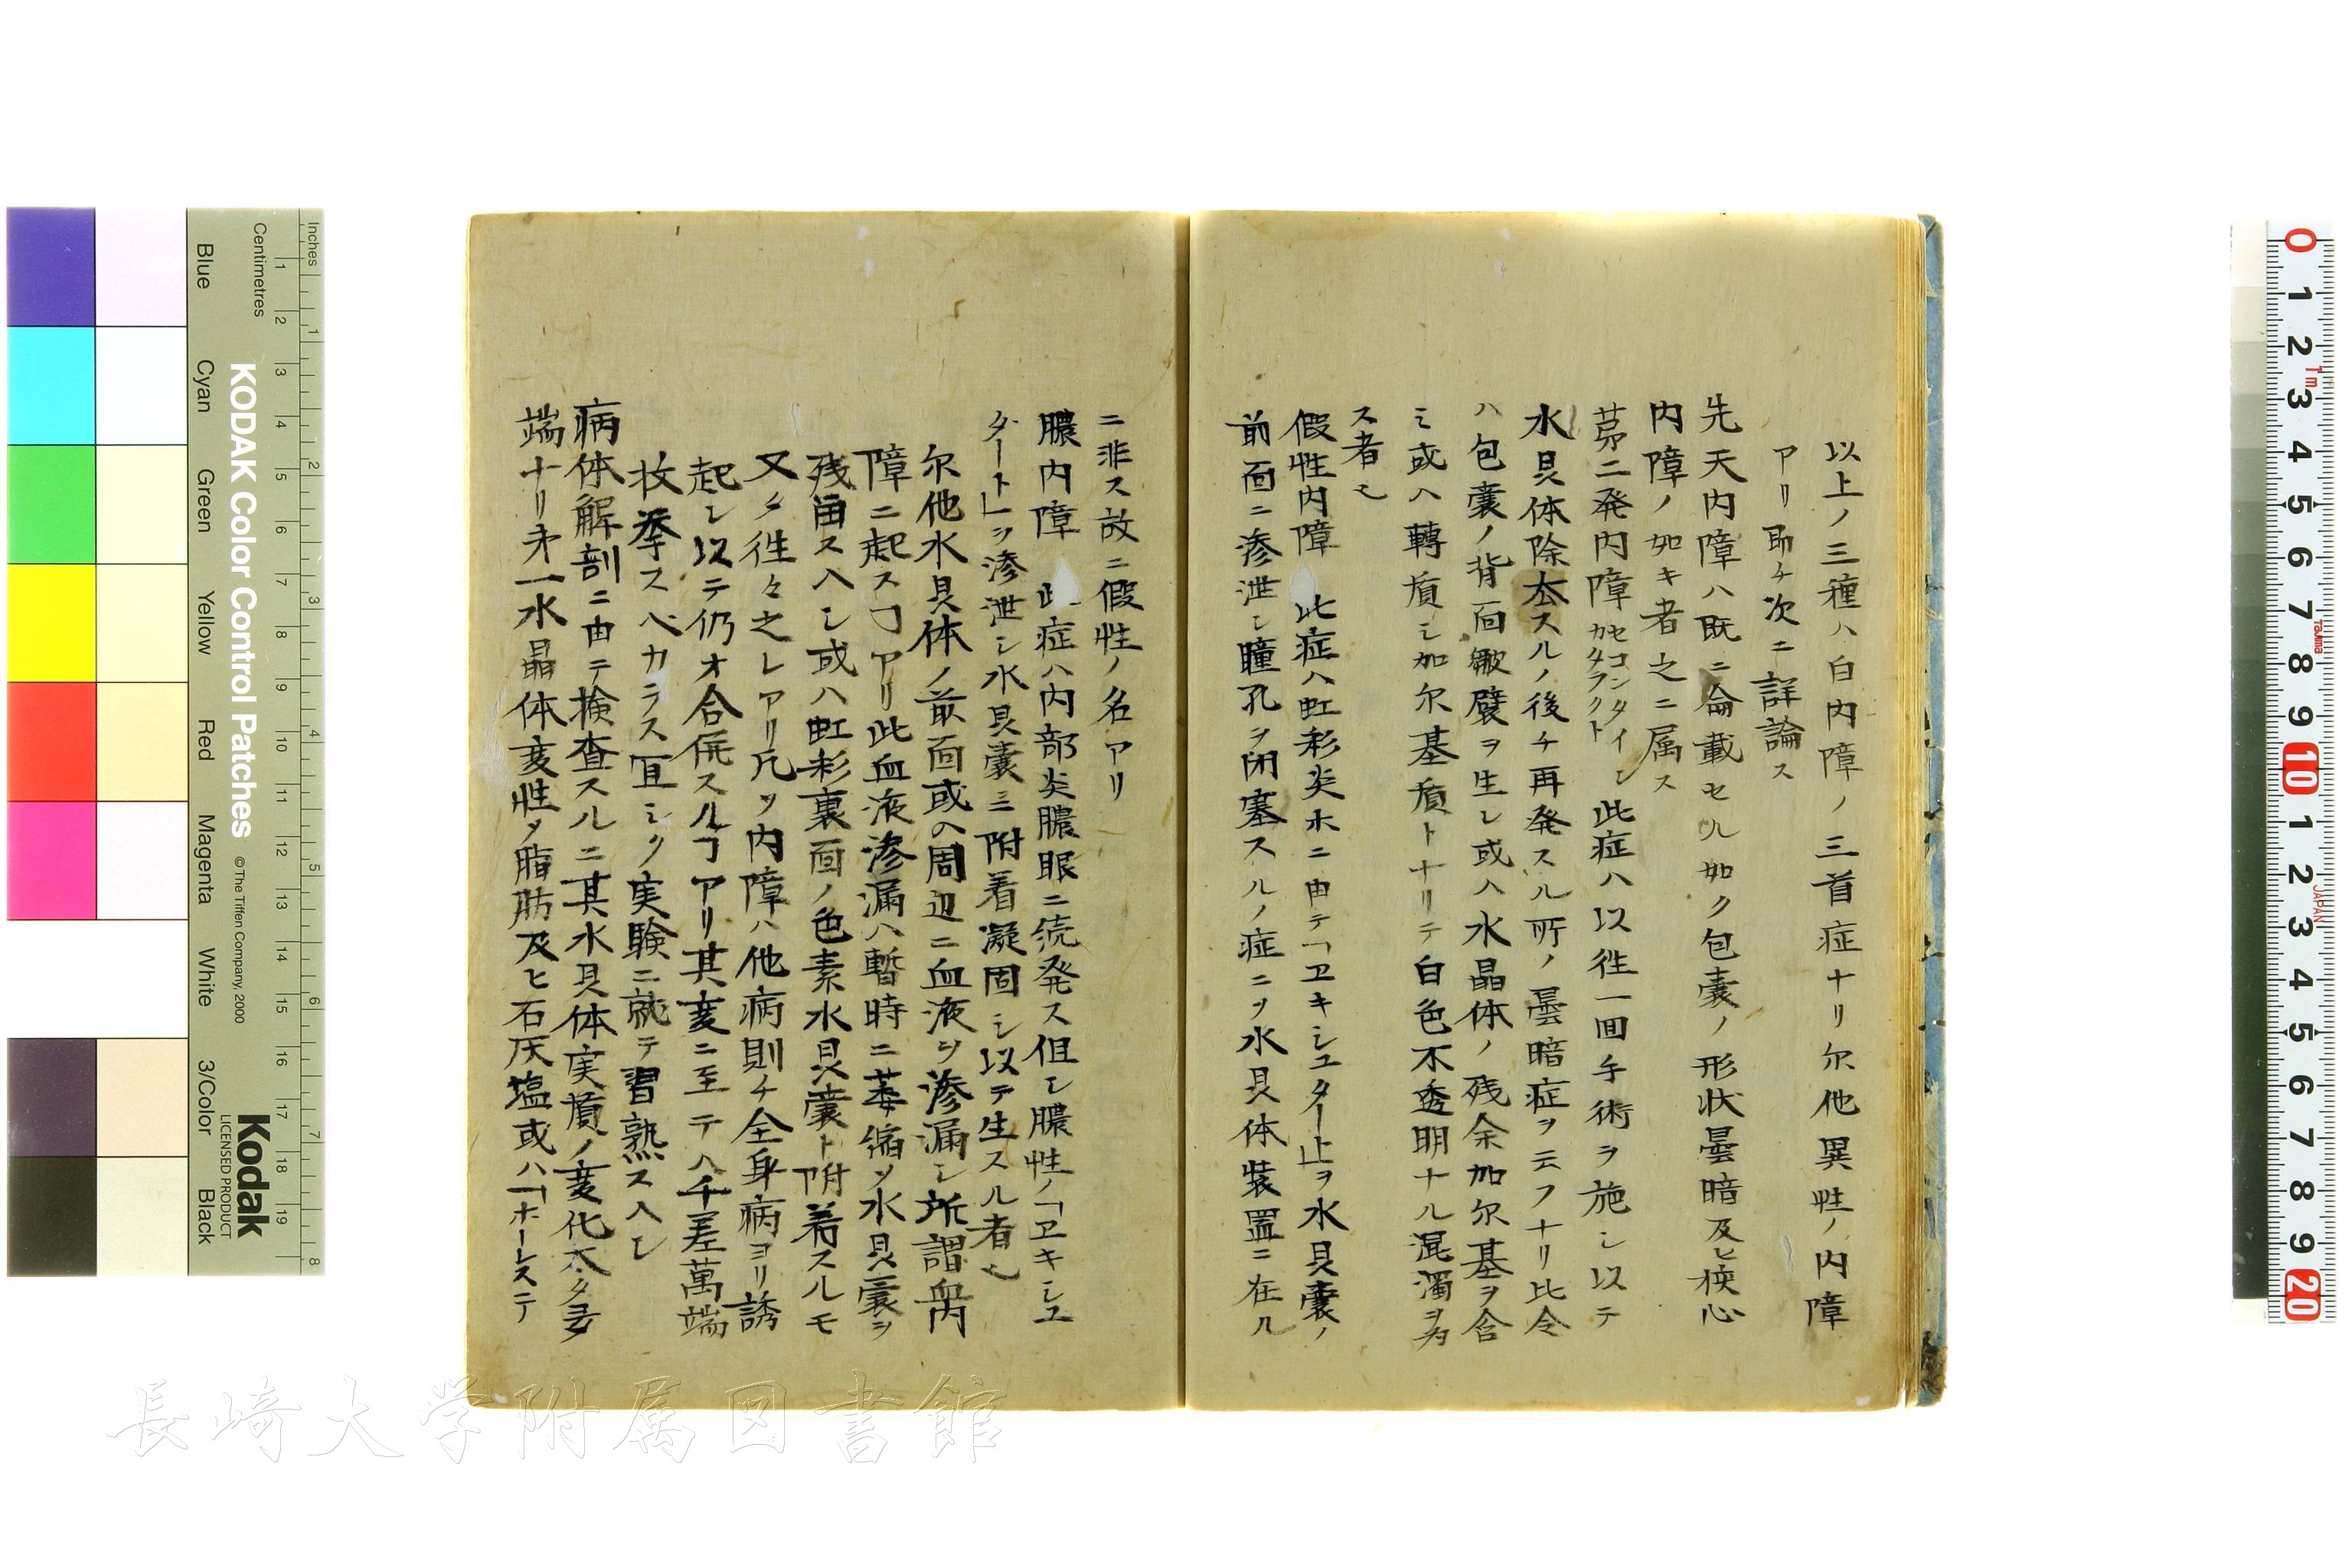 以上ノ三種ハ白内障ノ三首症ナリ尓他異性ノ内障
アリ即チ次ニ詳論ス
先天内障ハ既ニ論載セル如ク包嚢ノ形状曇暗及ヒ狭心
内障ノ如キ者之ニ属ス
第二発内障 セコンダイレ カタラクト 此症ハ以徃一回手術ヲ施シ以テ
水晶体除去スルノ後チ再発スル所ノ曇暗症ヲ云フナリ比令
ハ包嚢ノ背面皺襞ヲ生シ或ハ水晶体ノ残余加尓基ヲ含
ミ或ハ轉質シ加尓基質トナリテ白色不透明ナル混濁ヲ為
ス者也
假性内障 此症ハ虹彩炎ホニ由テ「ヱキシユタート」ヲ水晶嚢ノ
前面ニ滲泄シ瞳孔ヲ閉塞スルノ症ニヲ水晶体装置ニ在ル
ニ非ス故ニ假性ノ名アリ
膿内障 此症ハ内部炎膿眼ニ続発ス但シ膿性ノ「ヱキシユ
タート」ヲ滲泄シ水晶嚢ニ附着凝固シ以テ生スル者也
尓他水晶体ノ前面或ハ周辺ニ血液ヲ滲漏シ所謂血内
障ニ起スヿアリ此血液滲漏ハ暫時ニ萎縮ソ水晶嚢ヲ
残留スヘシ或ハ虹彩裏面ノ色素水晶嚢ト附着スルモ
又タ徃々之レアリ凡ソ内障ハ他病則チ全身病ヨリ誘
起シ以テ仍オ合併スルヿアリ其変ニ至テハ千差萬端
枚挙スヘカラス冝シク実験ニ就テ習熟スヘシ
病体解剖ニ由テ検査スルニ其水晶体実質ノ変化太タ多
端ナリ第一水晶体変性ソ脂肪及ヒ石灰塩或ハ「ホーレステ
KODAK Color Control Patches
© The Tiffen Company, 2000
Kodak
LICENSED PRODUCT
Inches
Centimetres
Blue
Cyan
Green
Yellow
Red
Magenta
White
3/Color
Black
長崎大学附属図書館